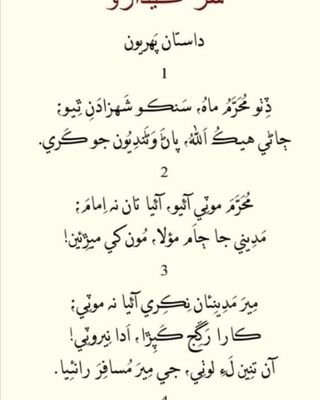 سر ڪيڏارو
داستان پھريون
1
ڏٺو مُحَرَّمُ ماہُ، سَنڪو شَھزادَنِ ٿِيو؛
ڄاڻي ھيڪُ اَللهُ، پاڻَ وَڻَندِيُون جو ڪَري.
2
مُحَرَّمَ موٽِي آئيو، آئيا تان نہ اِمامَ؛
مَدِيني جا ڄامَ مؤلا، مُون کي ميڙِئين!
3
مِيرَ مَدِينِئان نِڪِري آئيا نہ موٽِي؛
ڪارا رَڱِج ڪَپِڙا، اَدا نِيروٽِي!
آن تنِين لَءِ لوٽِي، جي مِيرَ مُسافِرَ رانئِيا.